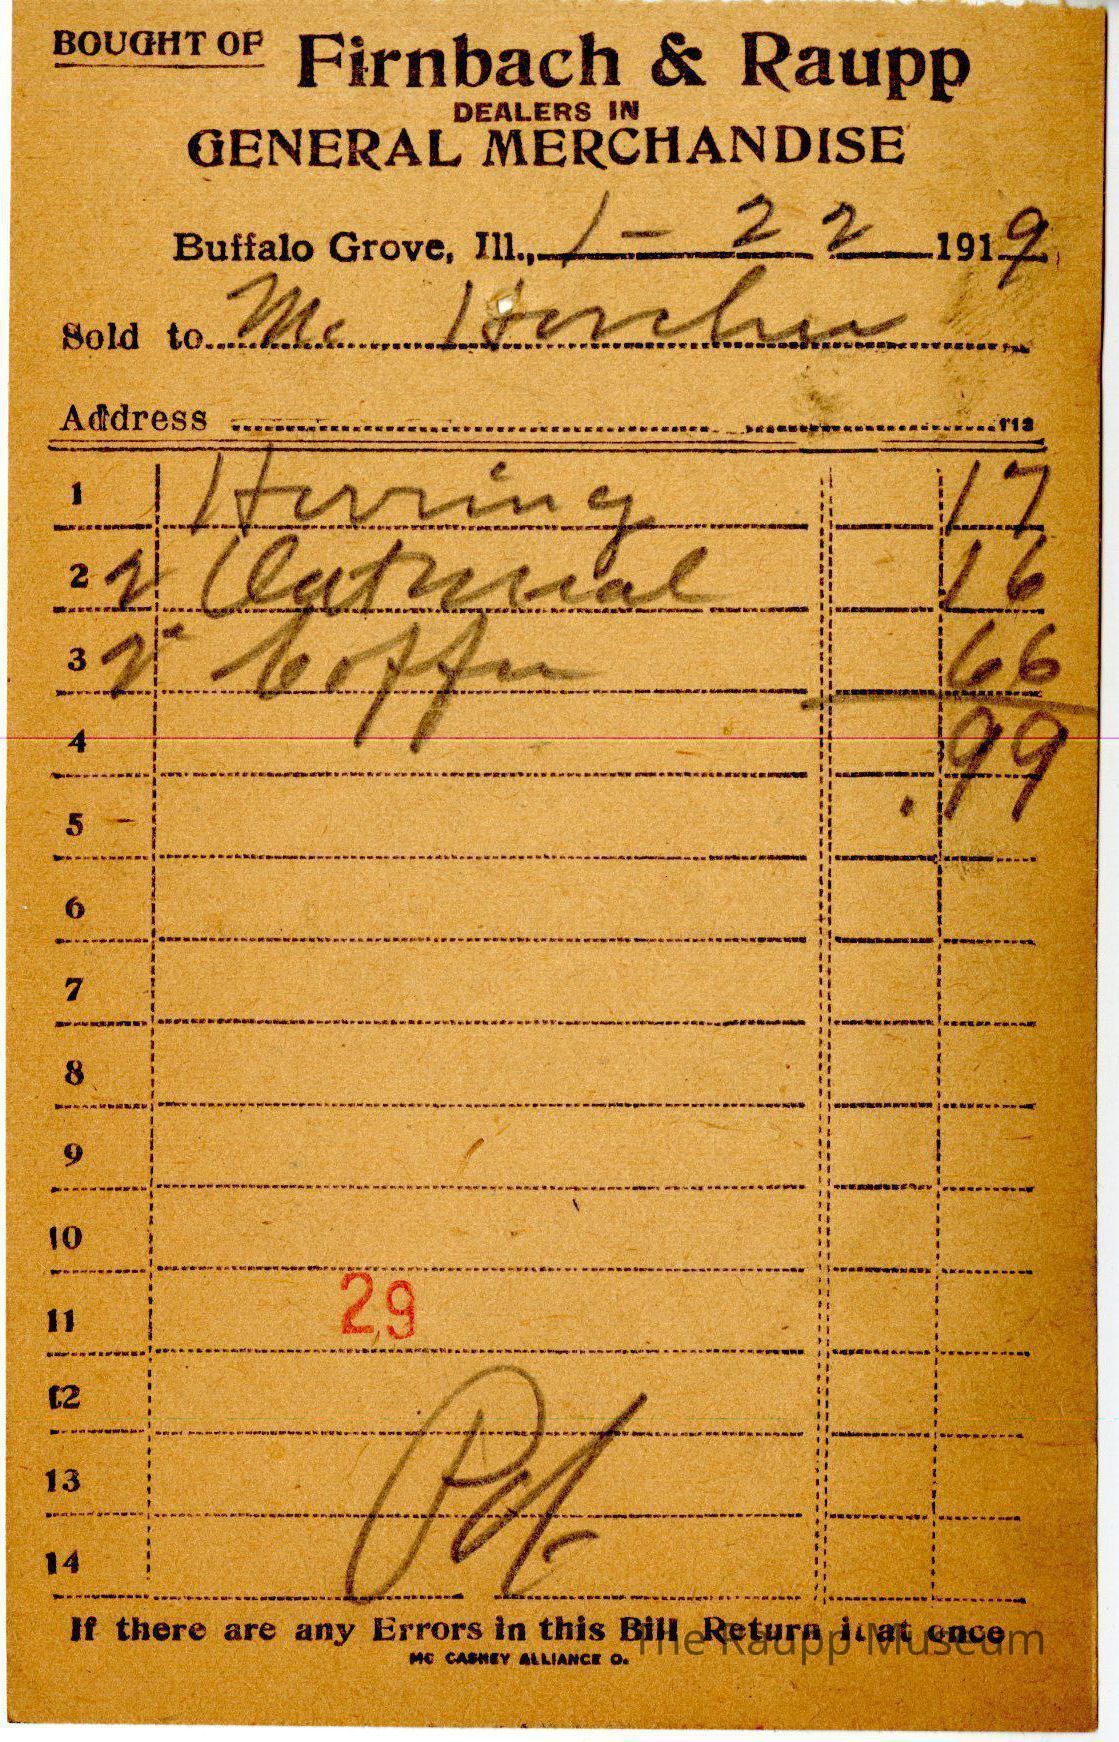 BOUGHT OF Firnbach & Raupp
DEALERS IN
GENERAL MERCHANDISE
Buffalo Grove, Ill., 1 - 22 1919
Sold to
Address
1 Herring 17
2 2 Oatmeal 16
3 2 Coffee 66
4 .99
5
6
7
8
9
10
11 29
12
13 Pd
14
If there are any Errors in this Bill Return it at once
MC CASKEY ALLIANCE O.
The Raupp Museum